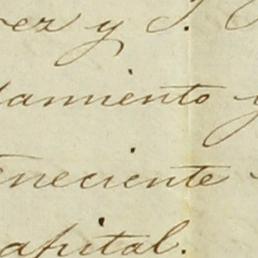 ez y J.
amiento y
teneciente
apital.